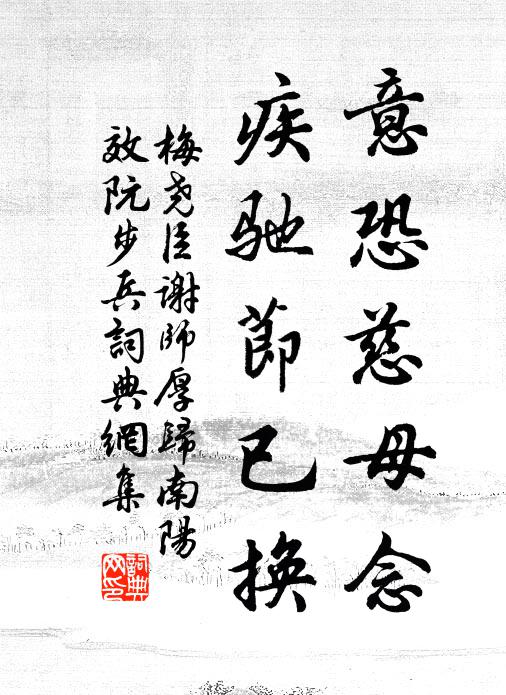 意恐慈母念
疾馳節已換
梅堯臣謝師厚歸南陽
效阮步兵詞典網集
詞典網印